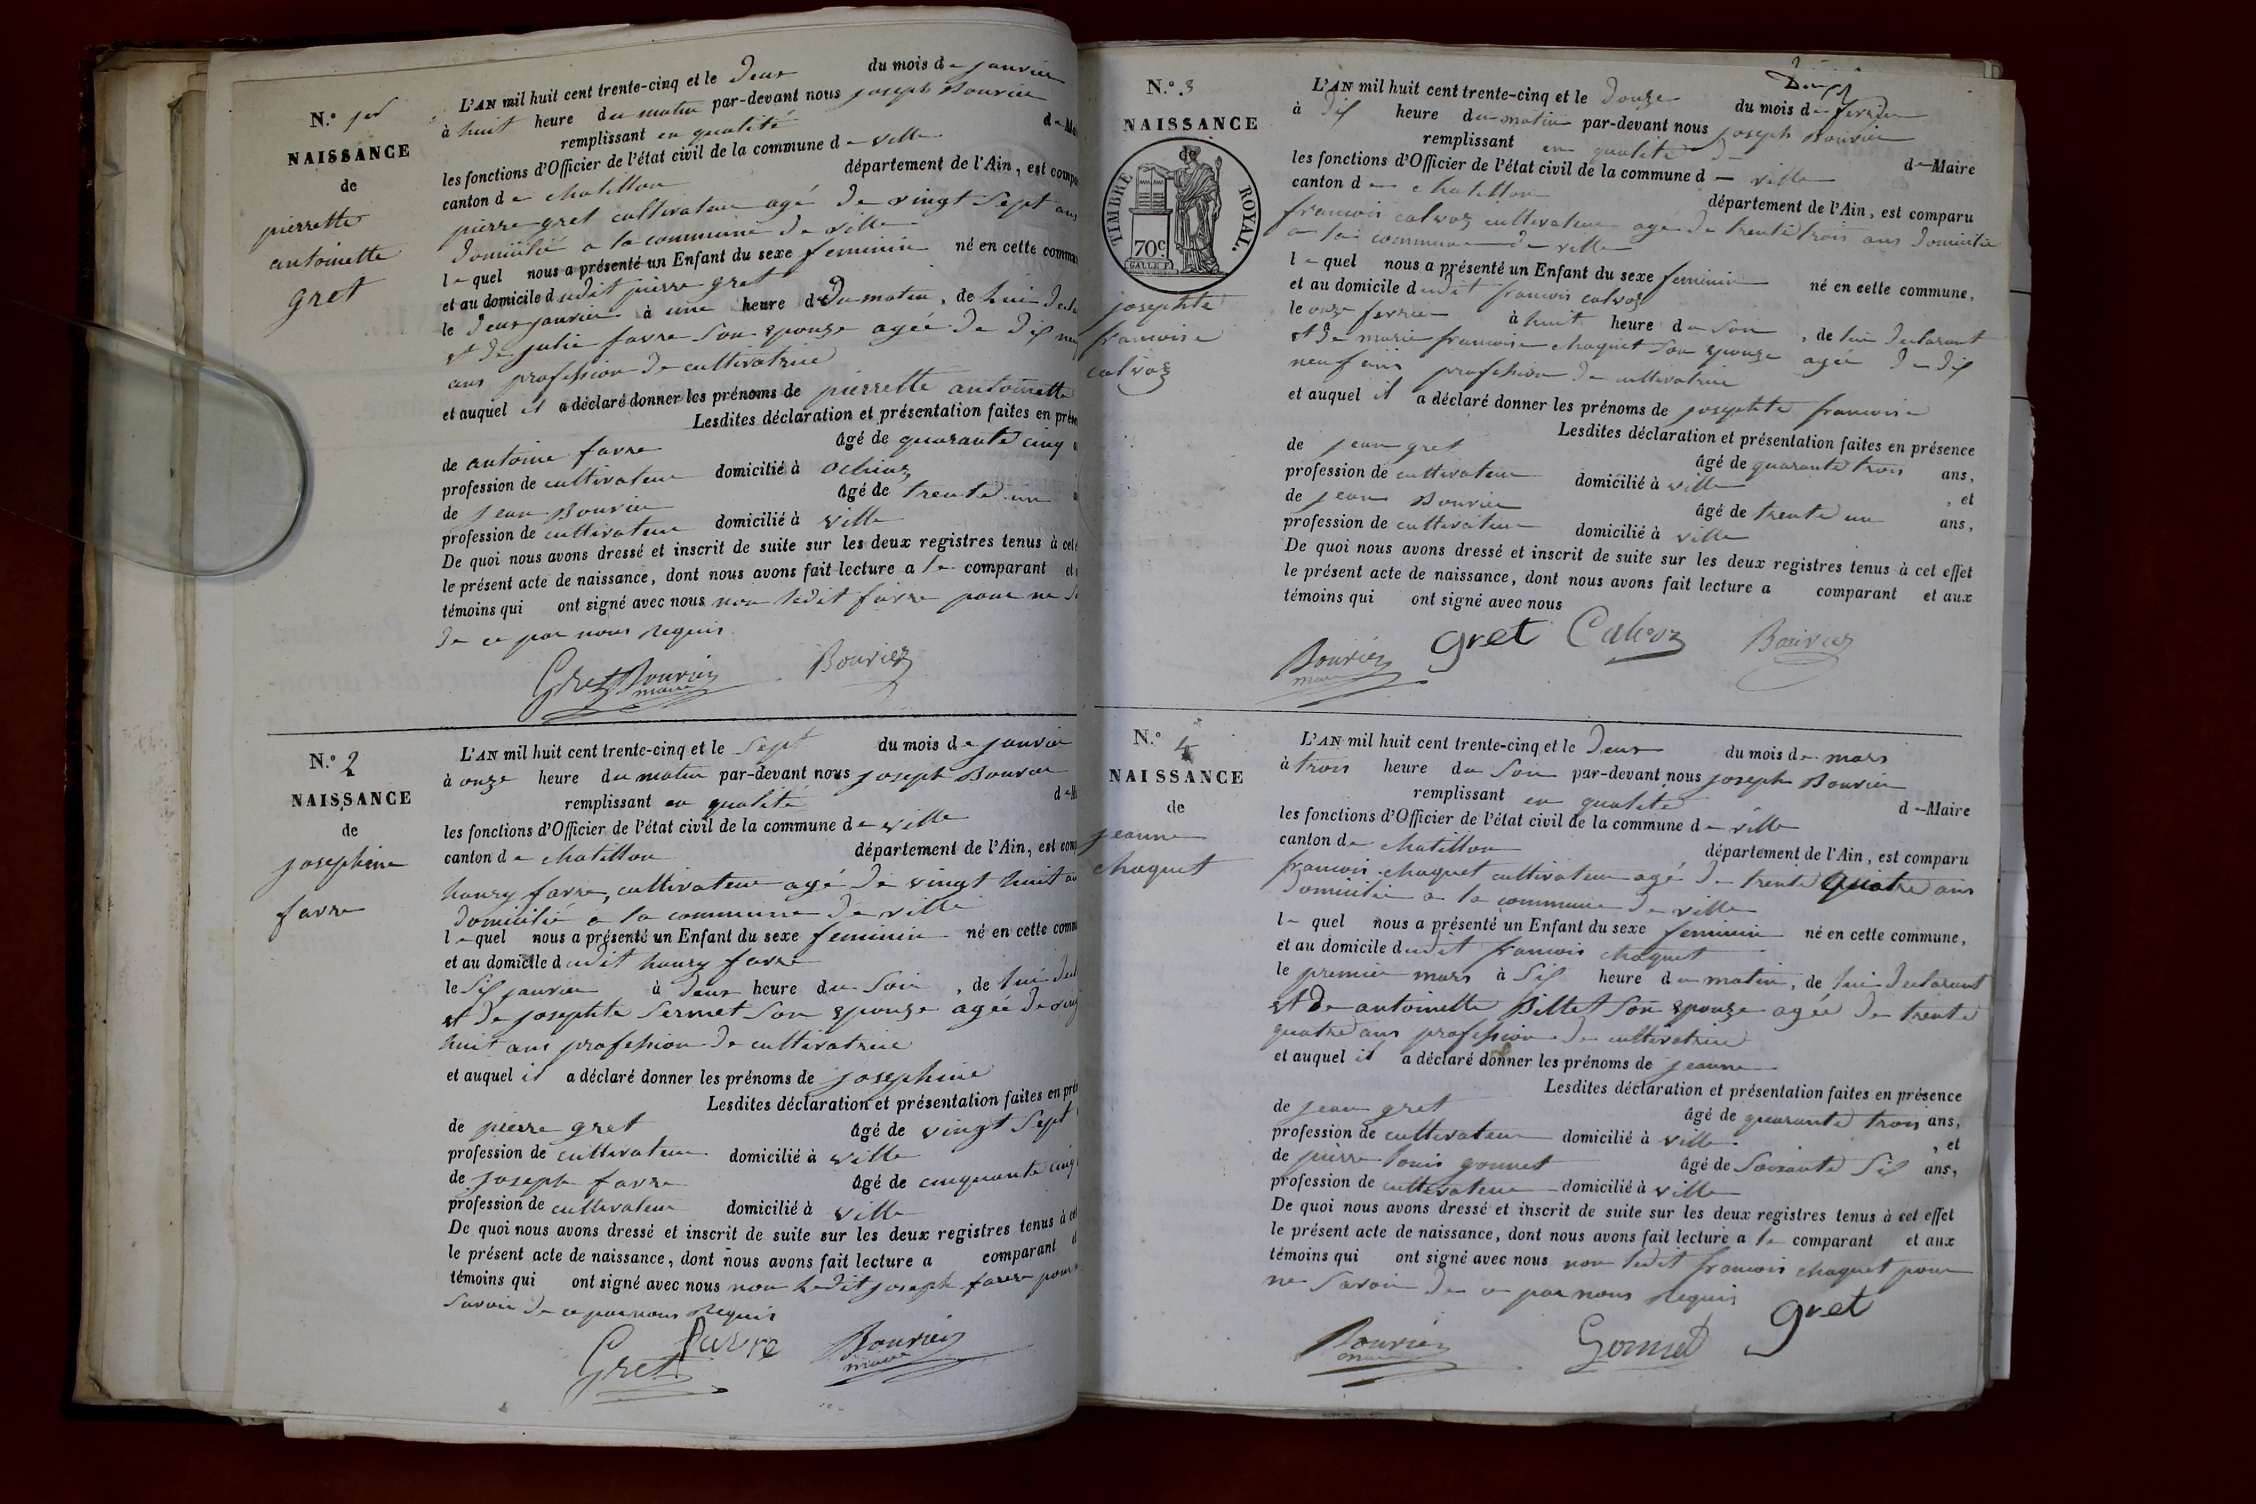 N.º 1er
NAISSANCE
de
pierrette
antoinette
gret
L'AN mil huit cent trente-cinq et le deux du mois de janvier
à huit heure du matin par-devant nous joseph Bouvier
remplissant en qualité de Mai
les fonctions d'Officier de l'état civil de la commune de ville
canton de chatillon département de l'Ain, est compa
pierre gret cultivateur agé de vingt sept ans
domicilié a la commune de ville
lequel nous a présenté un Enfant du sexe feminin né en cette commu
et au domicile dudit pierre gret
le deux janvier à une heure du matin, de lui decla
et de julie favre son epouze agée de dix neuf
ans profession de cultivatrice
et auquel il a déclaré donner les prénoms de pierrette antoinette
Lesdites déclaration et présentation faites en prése
de antoine favre âgé de quarante cinq
profession de cultivateur domicilié à ochiaz
de jean Bouvier âgé de trente un
profession de cultivateur domicilié à ville
De quoi nous avons dressé et inscrit de suite sur les deux registres tenus à cet
le présent acte de naissance, dont nous avons fait lecture a le comparant et
témoins qui ont signé avec nous non ledit favre pour ne
de ce par nous requis
Gret Bouvier Bouvier
maire
N.º 2
NAISSANCE
de
josephine
favre
L'AN mil huit cent trente-cinq et le sept du mois de janvier
à onze heure du matin par-devant nous joseph Bouvier
remplissant en qualité de
les fonctions d'Officier de l'état civil de la commune de ville
canton de chatillon département de l'Ain, est com
hanry favre, cultivateur agé de vingt huit
domicilié a la commune de ville
lequel nous a présenté un Enfant du sexe feminin né en cette comm
et au domicile dudit hanry favre
le six janvier à deux heure du soir, de lui decl
et de josephte Sermet son epouze agée de ving
huit ans profession de cultivatrice
et auquel il a déclaré donner les prénoms de josephine
Lesdites déclaration et présentation faites en pré
de pierre gret âgé de vingt sept
profession de cultivateur domicilié à ville
de joseph favre âgé de cinquante cinq
profession de cultivateur domicilié à ville
De quoi nous avons dressé et inscrit de suite sur les deux registres tenus à cet
le présent acte de naissance, dont nous avons fait lecture a comparant
témoins qui ont signé avec nous non ledit joseph favre pour
savoir de ce par nous requis
Gret favre Bouvier
maire
N.º 3
NAISSANCE
TIMBRE ROYAL.
70c.
josephte
francoise
calvoz
L'AN mil huit cent trente-cinq et le douze du mois de fevrier
à dix heure du matin par-devant nous joseph Bouvier
remplissant en qualité de Maire
les fonctions d'Officier de l'état civil de la commune de ville
canton de chatillon département de l'Ain, est comparu
francois calvoz cultivateur agé de trente trois ans domicilié
a la commune de ville
lequel nous a présenté un Enfant du sexe feminin né en cette commune,
et au domicile dudit francois calvoz
le onze fevrier à huit heure du soir, de lui declarant
et de marie francoise chaquet son epouze agée de dix
neuf ans profession de cultivatrice
et auquel il a déclaré donner les prénoms de josephte francoise
Lesdites déclaration et présentation faites en présence
de jean gret âgé de quarante trois ans,
profession de cultivateur domicilié à ville, et
de jean Bouvier âgé de trente un ans,
profession de cultivateur domicilié à ville
De quoi nous avons dressé et inscrit de suite sur les deux registres tenus à cet effet
le présent acte de naissance, dont nous avons fait lecture a comparant et aux
témoins qui ont signé avec nous
Bouvier gret Calvoz Bouvier
maire
N.º 4
NAISSANCE
de
jeanne
chaquet
L'AN mil huit cent trente-cinq et le deux du mois de mars
à trois heure du soir par-devant nous joseph Bouvier
remplissant en qualité de Maire
les fonctions d'Officier de l'état civil de la commune de ville
canton de chatillon département de l'Ain, est comparu
francois chaquet cultivateur agé de trente quatre ans
domicilié a la commune de ville
lequel nous a présenté un Enfant du sexe feminin né en cette commune,
et au domicile dudit francois chaquet
le premier mars à six heure du matin, de lui declarant
et de antoinette Billet son epouze agée de trente
quatre ans profession de cultivatrice
et auquel il a déclaré donner les prénoms de jeanne
Lesdites déclaration et présentation faites en présence
de jean gret âgé de quarante trois ans,
profession de cultivateur domicilié à ville, et
de pierre louis gonnet âgé de soixante six ans,
profession de cultivateur domicilié à ville
De quoi nous avons dressé et inscrit de suite sur les deux registres tenus à cet effet
le présent acte de naissance, dont nous avons fait lecture a le comparant et aux
témoins qui ont signé avec nous non ledit francois chaquet pour
ne savoir de ce par nous requis
Bouvier Gonnet gret
maire